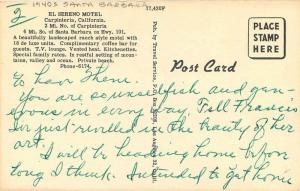 1940S SANTA BARBARA
2
EL SERENO MOTEL
Carpinteria, California.
2 Mi. No. of Carpinteria
6 Mi. So. of Santa Barbara on Hwy. 101.
A beautifully landscaped ranch style motel with
18 de luxe units. Complimentary coffee bar for
guests. T.V. lounge. Vented heat. Kitchenettes.
Family size rooms. In restful setting of moun-
tains, valley and ocean. Private beach.
Phone—6174.
PLACE
STAMP
HERE
Post Card
to have them.
You are so unselfish and gen-
erous in every way. Tell Francis
I'm just the beauty of her
art.
I will be heading home before
long I think. I to get home